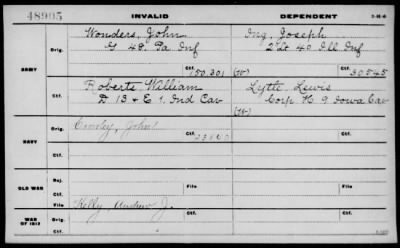 48905 INVALID DEPENDENT 3-114
Wonders, John Ing, Joseph
Orig. G 48. Pa Inf 2" Lt 40 Ill Inf
Ctf. Ctf.
150.301 (W) 30545
ARMY
Roberts, William Lytle, Lewis
Ctf. D 13 & E 1. Ind Cav Corp K 9 Iowa Cav
Orig. John
NAVY
Ctf.
Rej.
OLD WAR
Ctf. File File
Orig. Kelly, Andrew J.
WAR OF 1812
Ctf. Ctf.